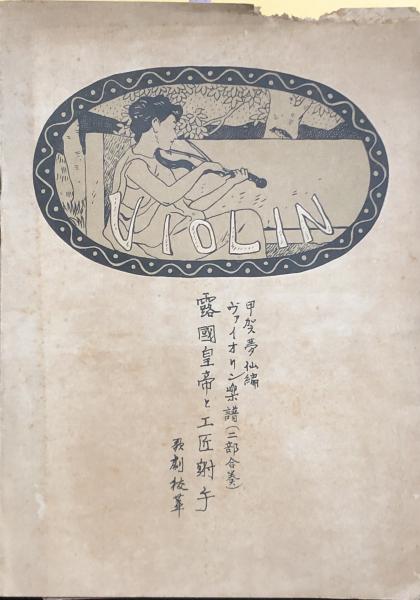 VIOLIN
甲賀夢仙編
ヴァイオリン樂譜(二部合奏)
露國皇帝と工匠射手
歌劇抜萃